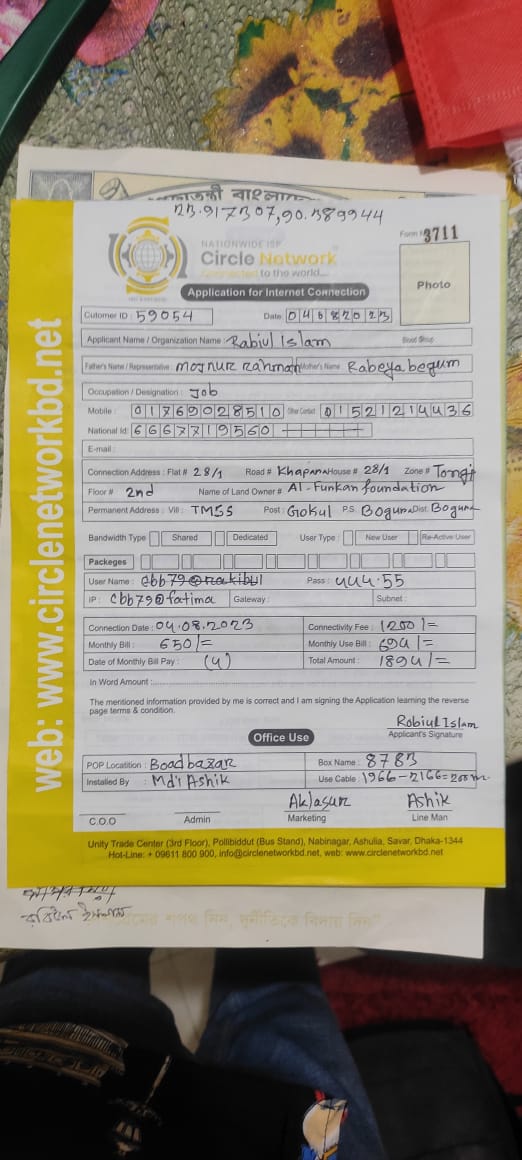 23.917307,90.389944
Form # 3711
NATIONWIDE ISP
Circle Network
Connected to the world...
Photo
Application for Internet Connection
Cutomer ID : 59054 Date: 04082023
Applicant Name / Organization Name : Rabiul Islam Blood Group
Father's Name / Representative Mojnur Rahman Mother's Name : Rabeya begum
Occupation / Designation : Job
Mobile : 01769028510 Other Contact 01521214436
National Id: 6667719560
E-mail :
Connection Address : Flat # 28/1 Road # Khapara House # 28/1 Zone # Tongi
Floor # 2nd Name of Land Owner # Al-Furkan foundation
Permanent Address : Vill : TMSS Post : Gokul P.S. Bogura Dist. Bogura
Bandwidth Type Shared Dedicated User Type : New User Re-Active User
Packeges
User Name : cbb79@rakibul Pass : 444.55
IP : cbb79@fatima Gateway : Subnet :
Connection Date : 04.08.2023 Connectivity Fee : 1200/=
Monthly Bill : 650/= Monthly Use Bill : 694/=
Date of Monthly Bill Pay : (4) Total Amount : 1894/=
In Word Amount :
The mentioned information provided by me is correct and I am signing the Application learning the reverse
page terms & condition.
Robiul Islam
Applicant's Signature
Office Use
POP Locatition : Boadbazar Box Name : 8783
Installed By : Md: Ashik Use Cable : 1966-2166=200m
Aklasur Ashik
C.O.O Admin Marketing Line Man
Unity Trade Center (3rd Floor), Pollibiddut (Bus Stand), Nabinagar, Ashulia, Savar, Dhaka-1344
Hot-Line: + 09611 800 900, info@circlenetworkbd.net, web: www.circlenetworkbd.net
web: www.circlenetworkbd.net
রবিউল ইসলাম
শপথ নিন, দুর্নীতিকে বিদায় দিন"